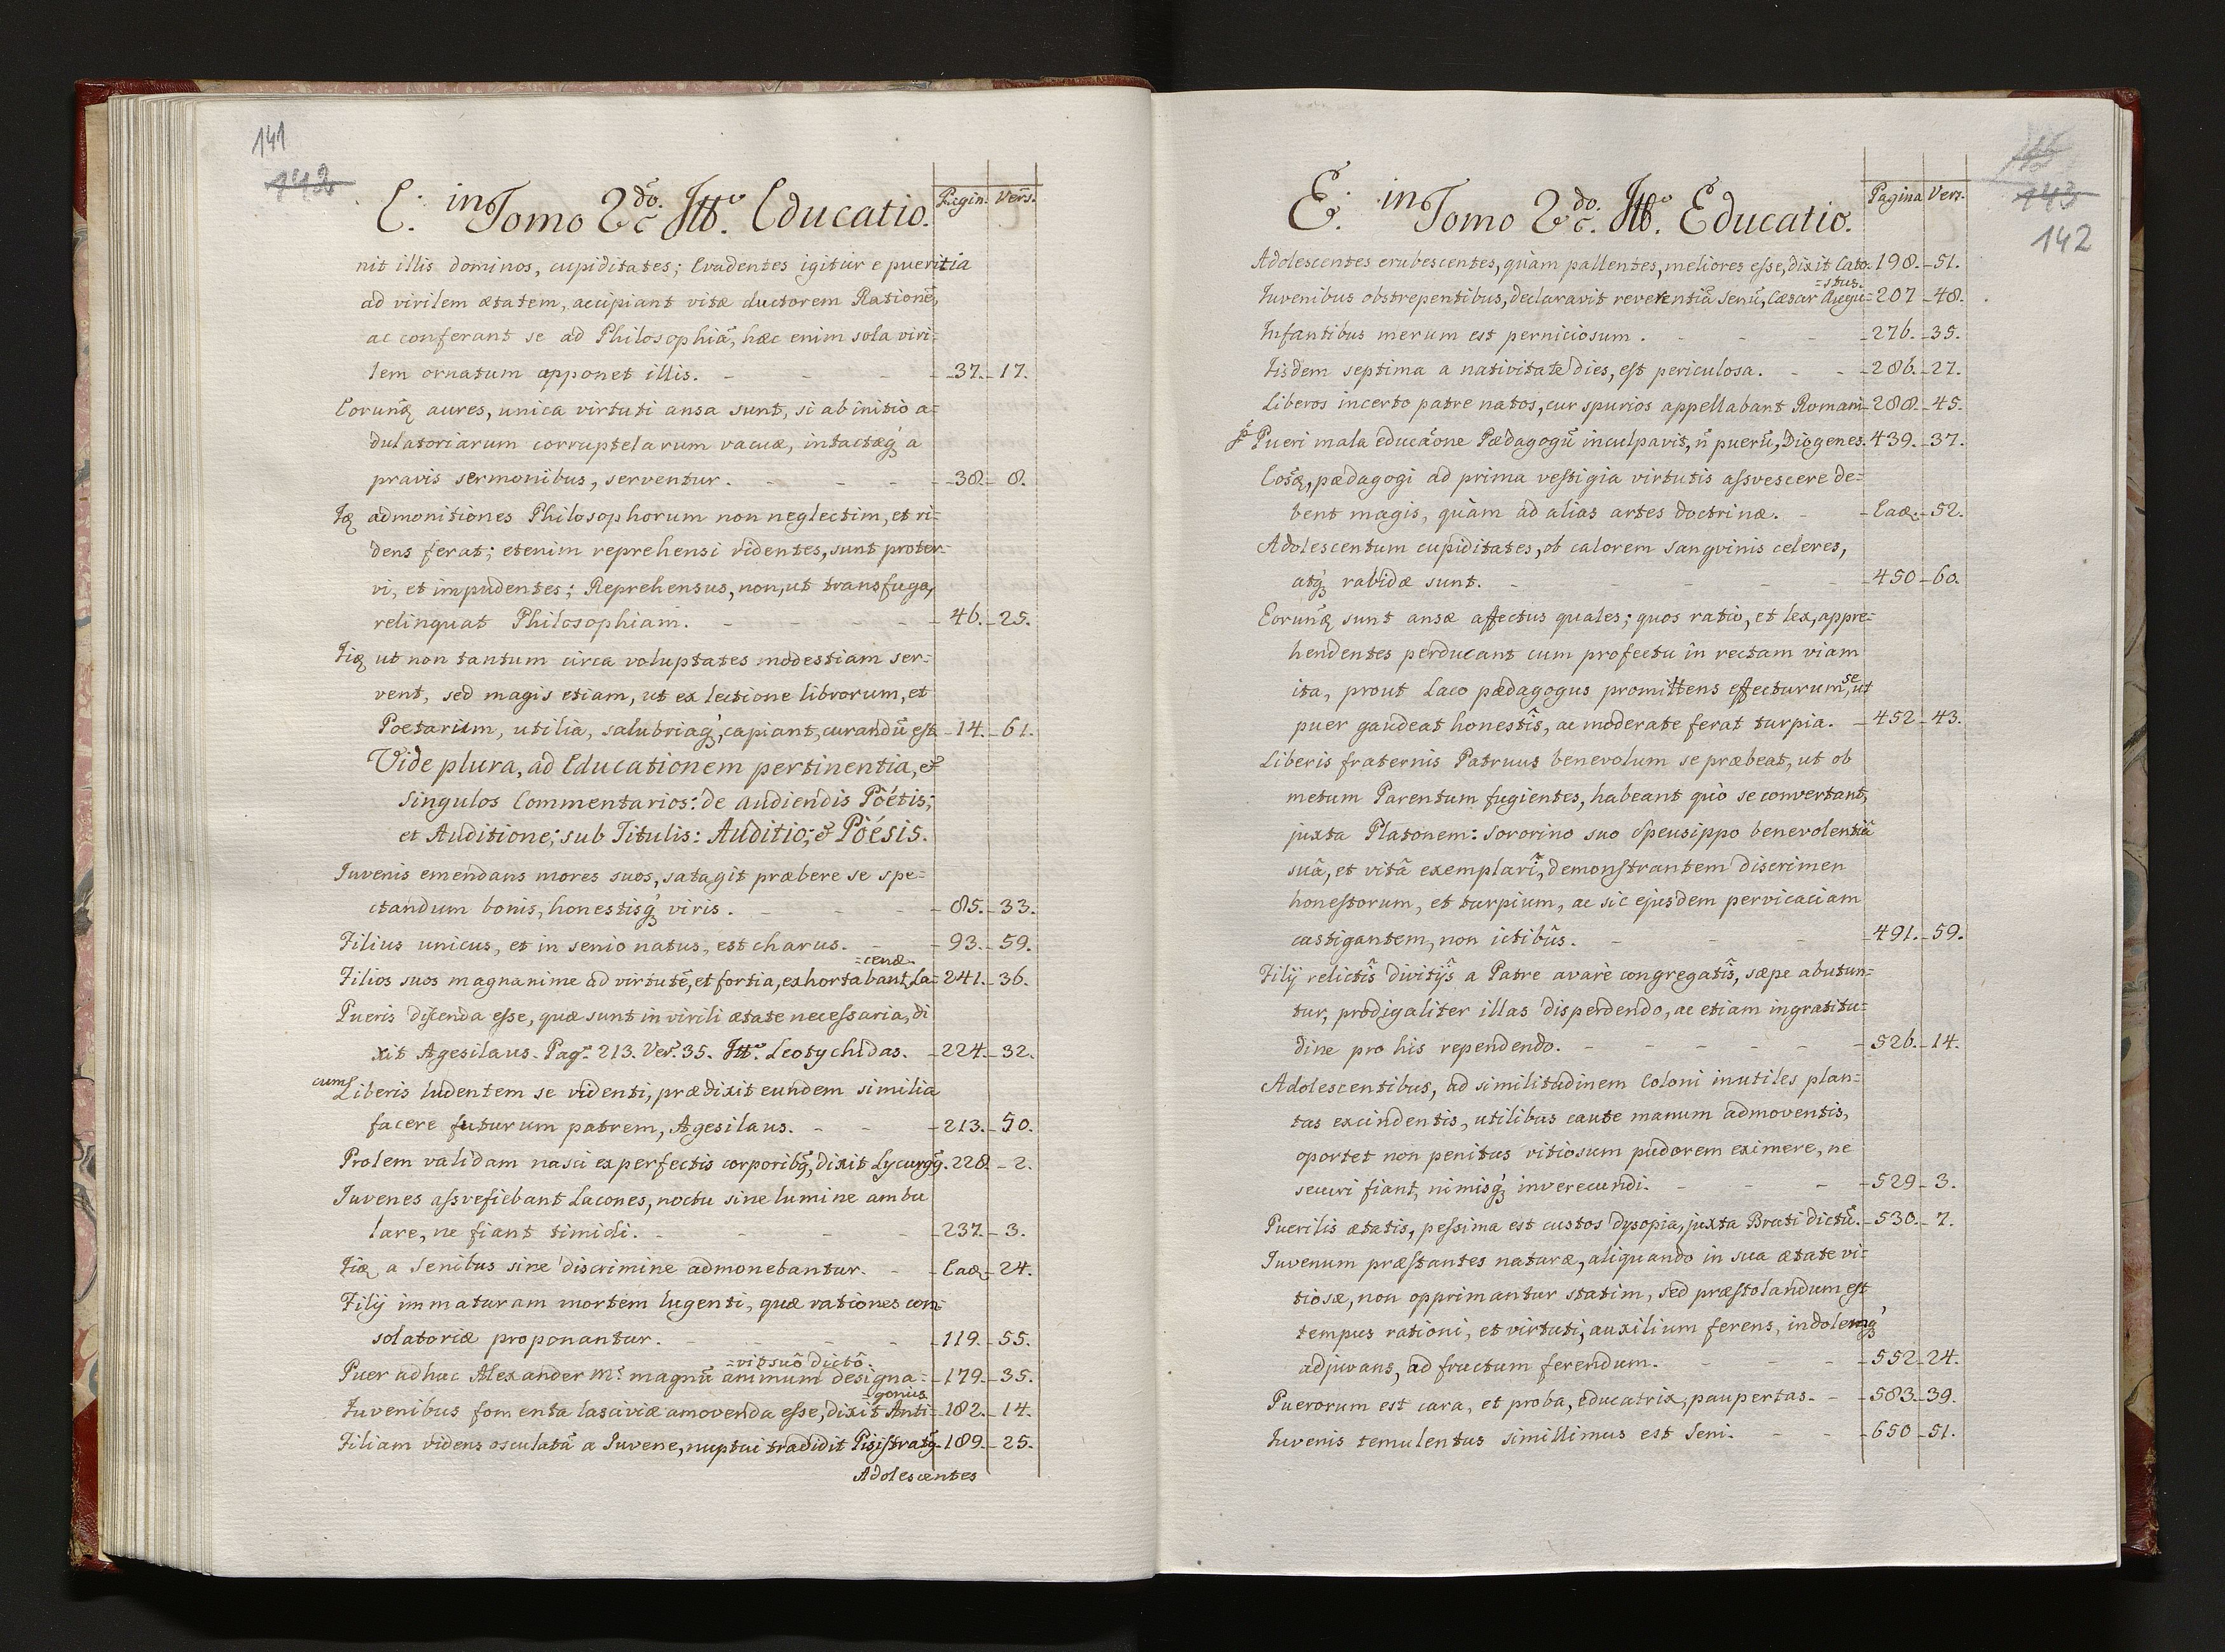 141
142
E. in Tomo 2do. Ttto. Educatio.
Pagin. Vers.
nit illis dominos, cupiditates; Evadentes igitur e pueritia
ad virilem ætatem, accipiant vitæ ductorem Rationẽ,
ac conferant se ad Philosophiã, hæc enim sola viri=
lem ornatum apponet illis. - - - - 37. - 17.
Eorunꝗ aures, unica virtuti ansa sunt, si ab initio a=
dulatoriarum corruptelarum vacuæ, intactæq́ꝫ a
pravis sermonibus, serventur. - - - - 38. - 8.
Iꝗ admonitiones Philosophorum non neglectim, et ri=
dens ferat; etenim reprehensi ridentes, sunt proter=
vi, et impudentes; Reprehensus, non, ut transfuga,
relinquat Philosophiam. - - - - 46. - 25.
Iiꝗ ut non tantum circa voluptates modestiam ser=
vent, sed magis etiam, ut ex lectione librorum, et
Poetarum, utilia, salubriaq́ꝫ, capiant, curandũ est - 14. - 61.
Vide plura, ad Educationem pertinentia, &
singulos Commentarios: de audiendis Pöétis;
et Auditione; sub Titulis: Auditio; & Pöésis.
Iuvenis emendans mores suos, satagit præbere se spe=
ctandum bonis, honestisq́ꝫ viris. - - - - 85. - 33.
Filius unicus, et in senio natus, est charus. - - 93. - 59.
=cenæ.
Filios suos magnanime ad virtutẽ, et fortia, exhortabant, La= 241. - 36.
Pueris discenda esse, quæ sunt in virili ætate necessaria, di
xit Agesilaus. Pag. 213. Ver. 35. Ttto. Leotychidas. - 224. - 32.
cum Liberis ludentem se videnti, prædixit eundem similia
facere futurum patrem, Agesilaus. - - - 213. - 50.
Prolem validam nasci ex perfectis corporibꝗ, dixit Lycurgꝗ. 228. - 2.
Iuvenes assvefiebant Lacones, noctu sine lumine ambu
lare, ne fiant timidi. - - - - 237. - 3.
Iiꝗ a Senibus sine discrimine admonebantur. - - Eaꝗ - 24.
Filij immaturam mortem lugenti, quæ rationes con=
solatoriæ proponantur. - - - - 119. - 55.
=vit suô dictô.
Puer adhuc Alexander M. magnũ animum designa= - 179. - 35.
=gonus.
Iuvenibus fomenta lasciviæ amovenda esse, dixit Anti= - 182. - 14.
Filiam videns osculatã a Iuvene, nuptui tradidit Pisistratꝗ - 189. - 25.
Adolescentes
143
142
E. in Tomo 2do. Ttto. Educatio.
Pagina Vers.
Adolescentes erubescentes, quàm pallentes, meliores esse, dixit Cato. 198. - 51.
=stus.
Iuvenibus obstrepentibus, declaravit reverentiã senũ, Cæsar Augu= 207 - 48.
Infantibus merum est perniciosum. - - - 276. - 35.
Iisdem septima a nativitate dies, est periculosa. - - 286. - 27.
Liberos incerto patre natos, cur spurios appellabant Romani - 288. - 45.
Pueri mala educãone Pædagogũ inculpavit, ñ puerũ, Diogenes. 439. - 37.
Eosꝗ, pædagogi ad prima vestigia virtutis assvescere de=
bent magis, quàm ad alias artes doctrinæ. - - Eaꝗ - 52.
Adolescentum cupiditates, ob calorem sangvinis celeres,
atq́ꝫ rabidæ sunt. - - - - 450 - 60.
Eorunꝗ sunt ansæ affectus quales; quos ratio, et lex, appre=
hendentes perducant cum profectu in rectam viam
ita, prout Laco pædagogus promittens effecturum se, ut
puer gaudeat honestîs, ac moderate ferat turpia. - 452 - 43.
Liberis fraternis Patruus benevolum se præbeat, ut ob
metum Parentum fugientes, habeant quò se convertant,
juxta Platonem: sororino suo Speusippo benevolentiã
suã, et vitã exemplari, demonstrantem discrimen
honestorum, et turpium, ac sic ejusdem pervicaciam
castigantem, non ictibûs. - - - - 491. - 59.
Filij relictîs divitijs a Patre avarè congregatîs, sæpe abutun=
tur, prodigaliter illas disperdendo, ac etiam ingratitu=
dine pro his rependendo. - - - - 526. - 14.
Adolescentibus, ad similitudinem Coloni inutiles plan=
tas excindentis, utilibus caute manum admoventis,
oportet non penitus vitiosum pudorem eximere, ne
securi fiant, nimisq́ꝫ inverecundi. - - - 529 - 3.
Puerilis ætatis, pessima est custos dysopia, juxta Bruti dictũ. - 530. - 7.
Iuvenum præstantes naturæ, aliquando in sua ætate vi=
tiosæ, non opprimantur statim, sed præstolandum est
tempus rationi, et virtuti, auxilium ferens, indolemq́ꝫ
adjuvans, ad fructum ferendum. - - - 552 - 24.
Puerorum est cara, et proba, educatrix, paupertas. - - 583 - 39.
Iuvenis temulentus simillimus est Seni. - - - 650 - 51.